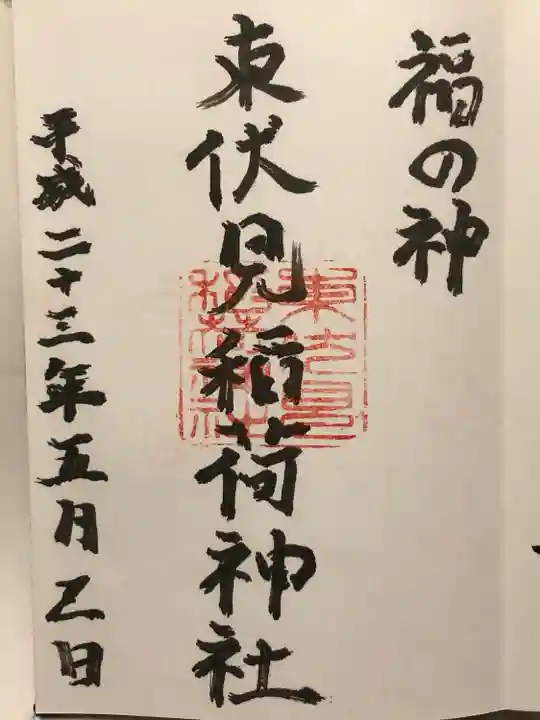 福の神
東伏見稲荷神社
東伏見稲荷神社
平成二十三年五月乙日